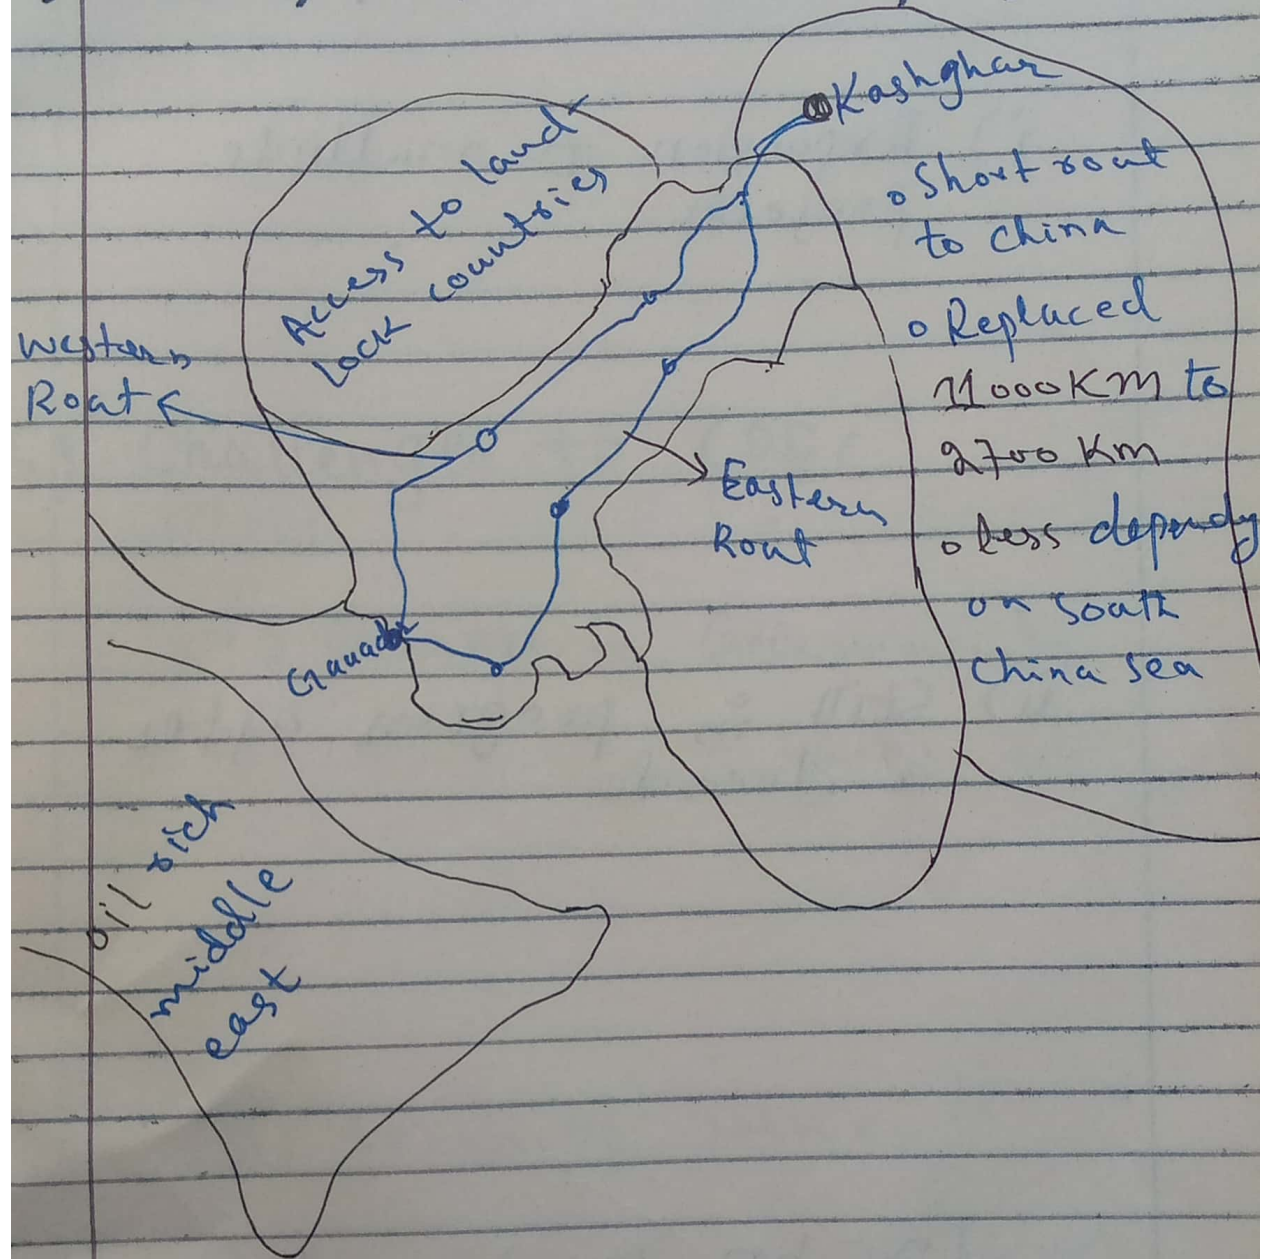 Kashghar
Access to land
lock countries
o Short rout
to china
o Replaced
11000 KM to
2700 KM
o less dependy
on south
china sea
Western
Rout
Eastern
Rout
Gawadar
oil rich
middle
east